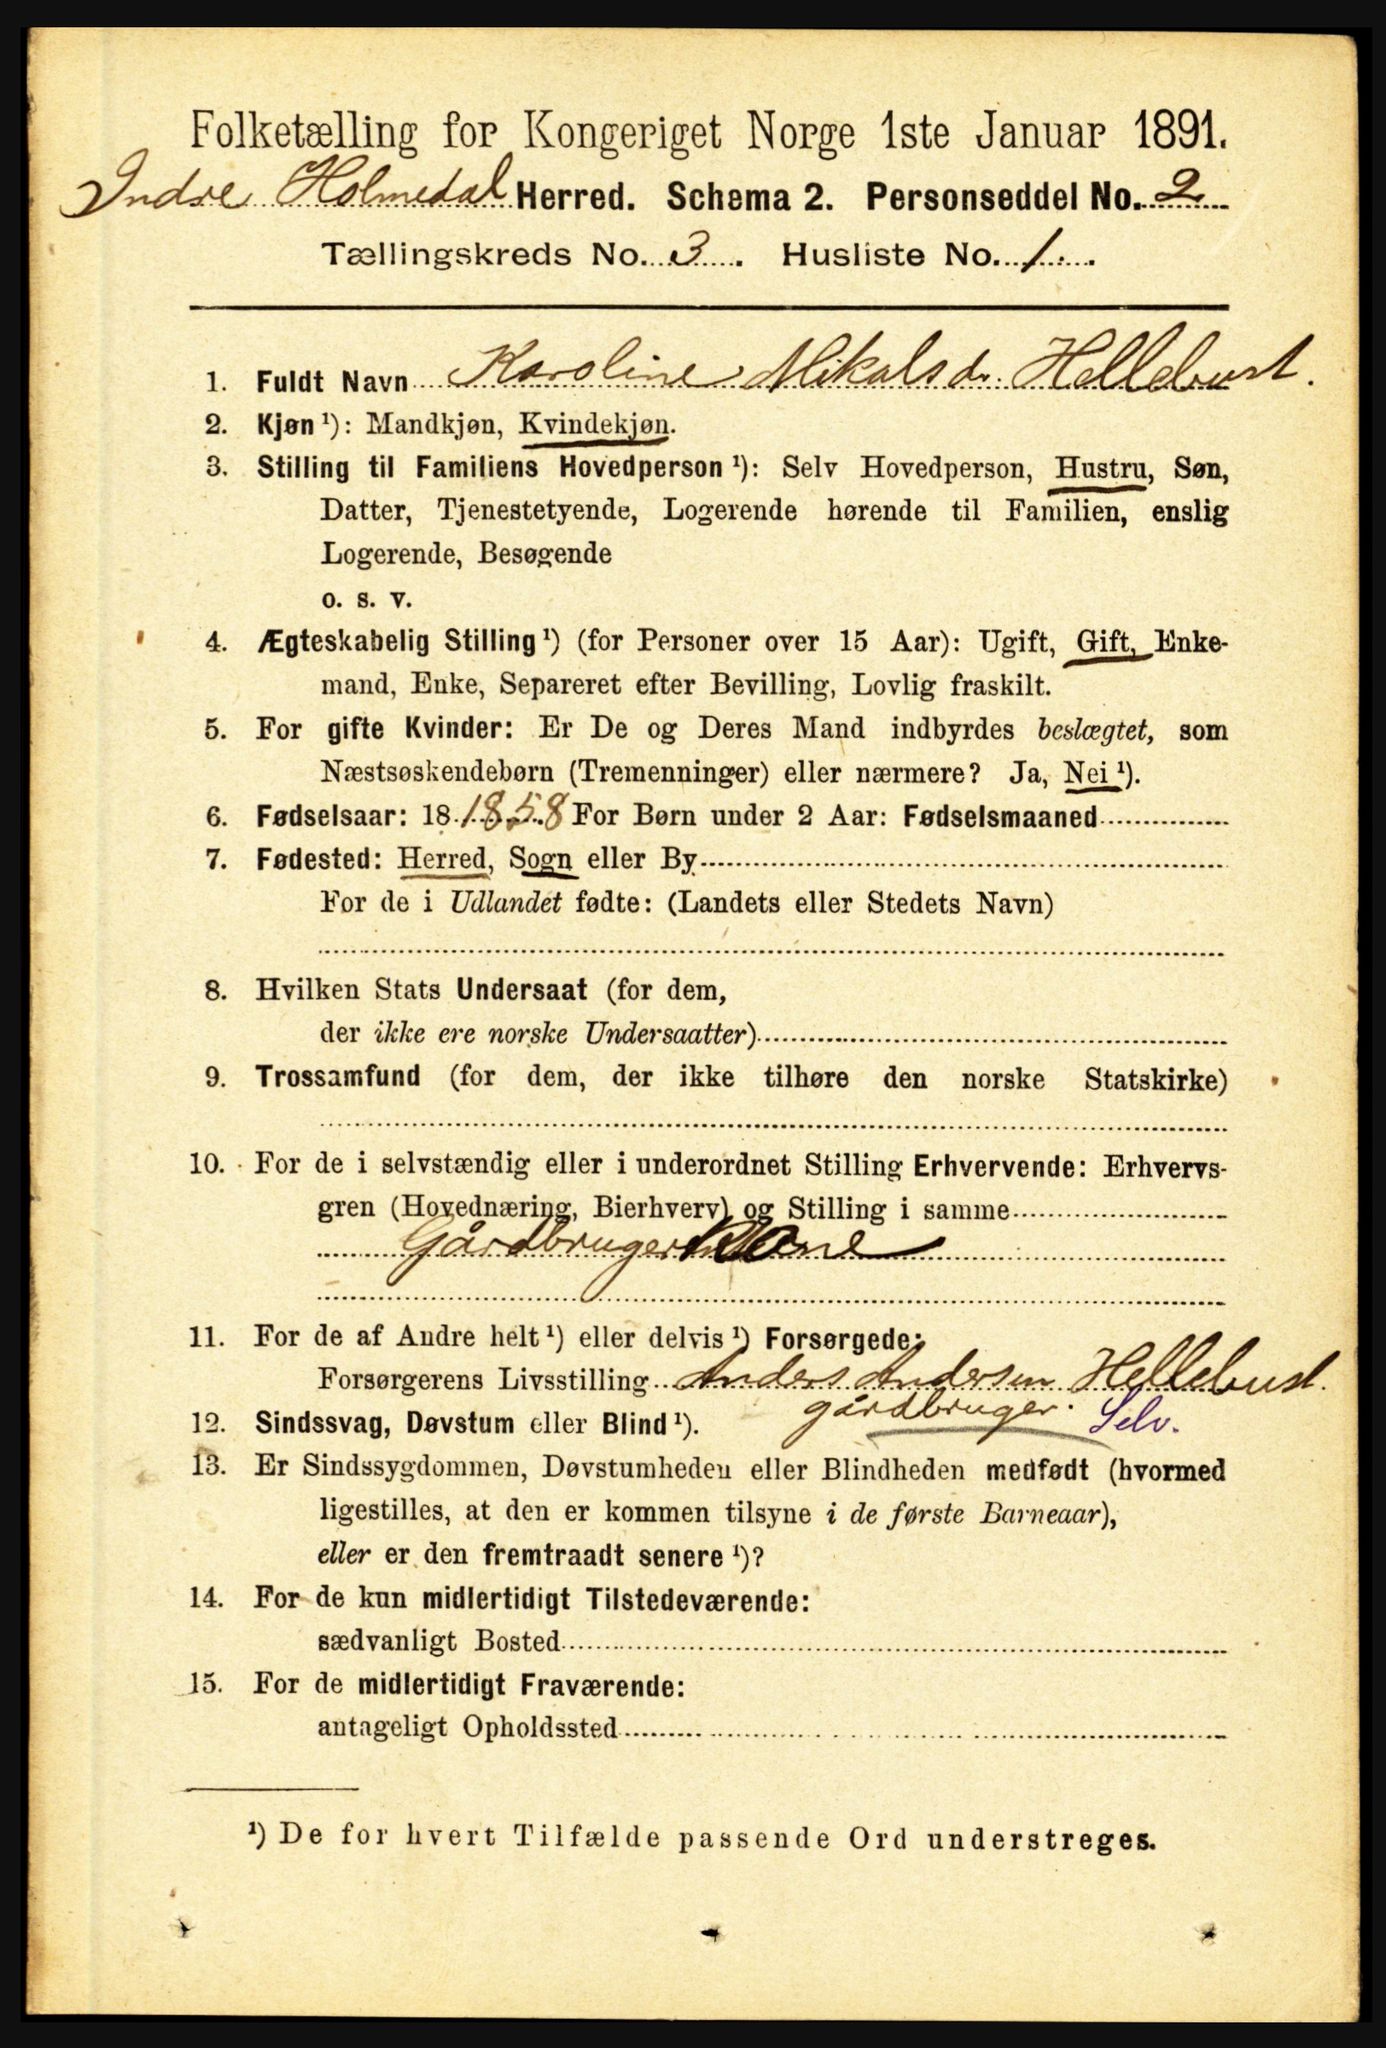 Folketælling for Kongeriget Norge 1ste Januar 1891.
Indre Holmedal Herred. Schema 2. Personseddel No. 2
Tællingskreds No. 3. Husliste No. 1.
1. Fuldt Navn Karoline Mikalsdr Hellebust.
2. Kjøn¹): Mandkjøn, Kvindekjøn.
3. Stilling til Familiens Hovedperson¹): Selv Hovedperson, Hustru, Søn,
Datter, Tjenestetyende, Logerende hørende til Familien, enslig
Logerende, Besøgende
o. s. v.
4. Ægteskabelig Stilling¹) (for Personer over 15 Aar): Ugift, Gift, Enke-
mand, Enke, Separeret efter Bevilling, Lovlig fraskilt.
5. For gifte Kvinder: Er De og Deres Mand indbyrdes beslægtet, som
Næstsøskendebørn (Tremenninger) eller nærmere? Ja, Nei¹).
6. Fødselsaar: 18 1858 For Børn under 2 Aar: Fødselsmaaned
7. Fødested: Herred, Sogn eller By
For de i Udlandet fødte: (Landets eller Stedets Navn)
8. Hvilken Stats Undersaat (for dem,
der ikke ere norske Undersaatter)
9. Trossamfund (for dem, der ikke tilhøre den norske Statskirke)
10. For de i selvstændig eller i underordnet Stilling Erhvervende: Erhvervs-
gren (Hovednæring, Bierhverv) og Stilling i samme
Gårdbruger Kone
11. For de af Andre helt¹) eller delvis¹) Forsørgede:
Forsørgerens Livsstilling Anders Andersen Hellebust.
gårdbruger. Selv.
12. Sindssvag, Døvstum eller Blind¹).
13. Er Sindssygdommen, Døvstumheden eller Blindheden medfødt (hvormed
ligestilles, at den er kommen tilsyne i de første Barneaar),
eller er den fremtraadt senere¹)?
14. For de kun midlertidigt Tilstedeværende:
sædvanligt Bosted
15. For de midlertidigt Fraværende:
antageligt Opholdssted
¹) De for hvert Tilfælde passende Ord understreges.